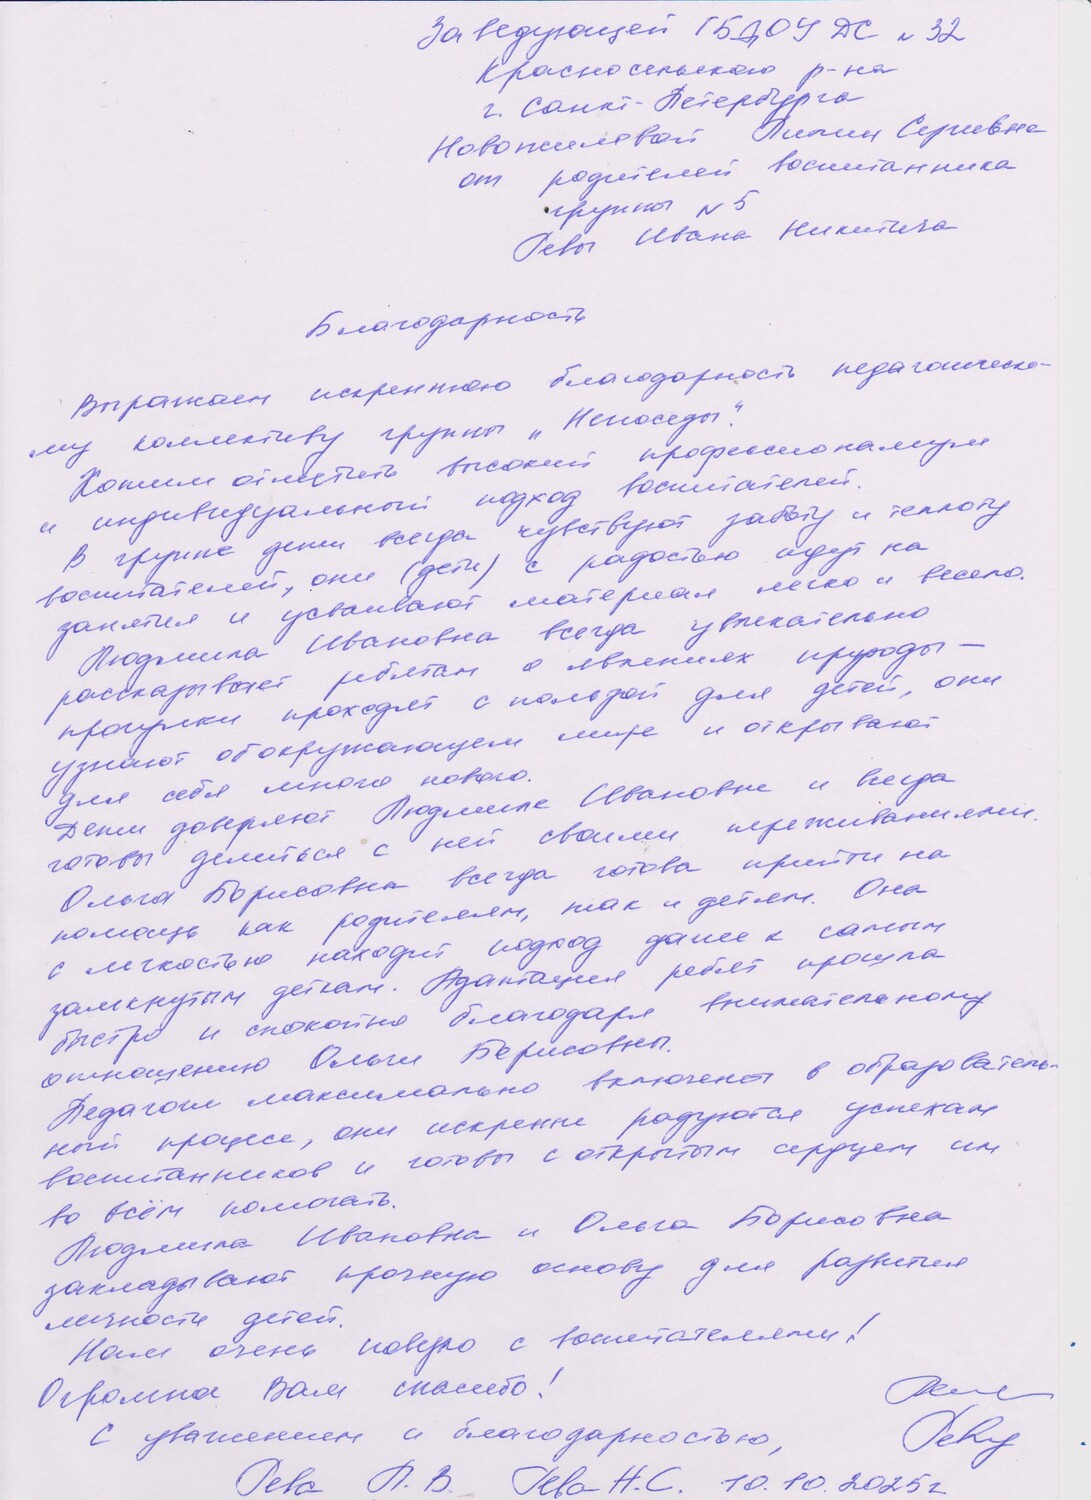 Заведующей ГБДОУ ДС №32
Красносельского р-на
г. Санкт-Петербурга
Новожиловой Лилии Сергиевне
от родителей воспитанника
группы №5
Ревы Ивана Никитича
Благодарность
Выражаем искреннюю благодарность педагогическо-
му коллективу группы „Непоседы".
Хотим отметить высокий профессионализм
и индивидуальный подход воспитателей.
В группе дети всегда чувствуют заботу и теплоту
воспитателей, они (дети) с радостью идут на
занятия и усваивают материал легко и весело.
Людмила Ивановна всегда увлекательно
рассказывает ребятам о явлениях природы –
прогулки проходят с пользой для детей, они
узнают об окружающем мире и открывают
для себя много нового.
Дети доверяют Людмиле Ивановне и всегда
готовы делиться с ней своими переживаниями.
Ольга Борисовна всегда готова прийти на
помощь как родителям, так и детям. Она
с легкостью находит подход даже к самым
замкнутым деткам. Адаптация ребят прошла
быстро и спокойно благодаря внимательному
отношению Ольги Борисовны.
Педагоги максимально включены в образователь-
ный процесс, они искренне радуются успехам
воспитанников и готовы с открытым сердцем им
во всём помогать.
Людмила Ивановна и Ольга Борисовна
закладывают прочную основу для развития
личности детей.
Нам очень повезло с воспитателями!
Огромное Вам спасибо!
С уважением и благодарностью,
Рева Л. В. Рева Н. С. 10.10.2025г